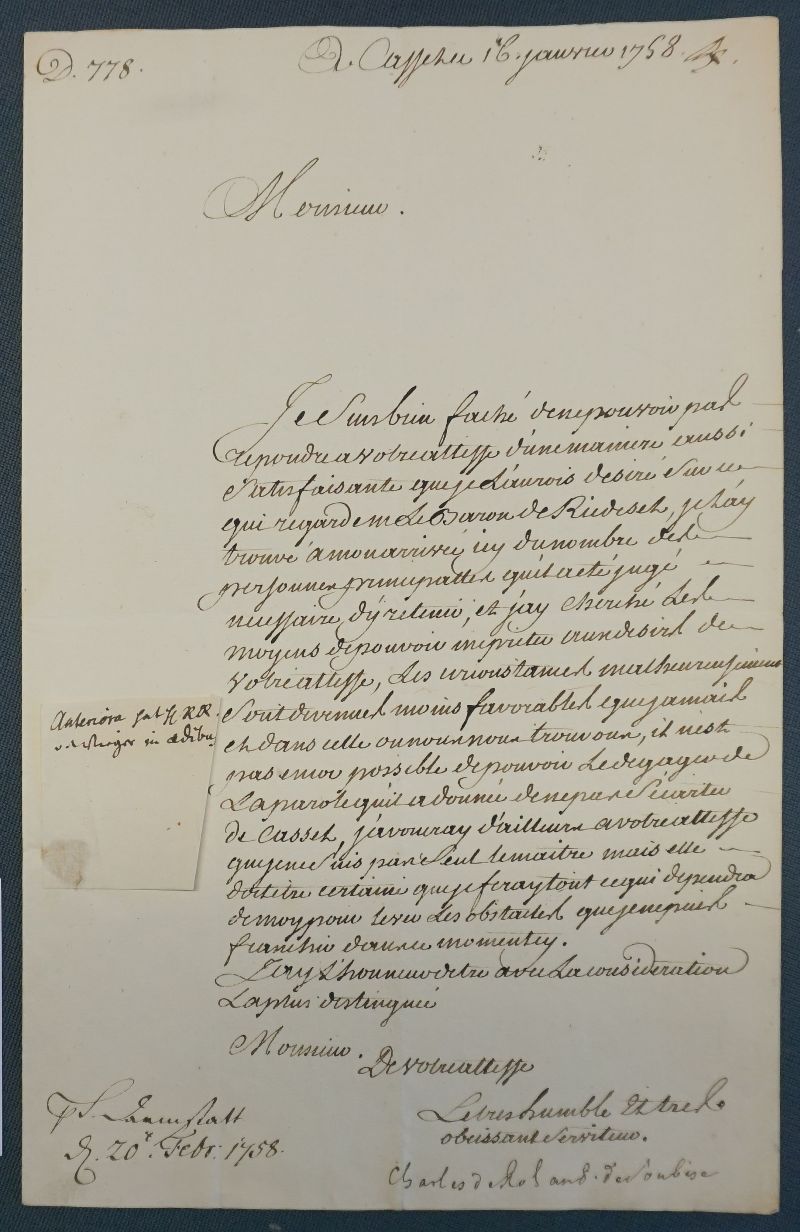 D. 778.
A Casshel 16. janvier 1758.
Monsieur.
Je Suis bien faché de ne pouvoir pas
repondre a votre altesse d'une maniere aussi
Satisfaisante que je L'aurois desiré Sur ce
qui regarde m Le Baron de Riedesel, je L'ay
trouvé a mon arrivée icy du nombre des
personnes principalles qu'il a été jugé
necessaire d'y retenir, et j'ay cherché Les
moyens de pouvoir me preter aux desirs de
Votre altesse, Les circonstances malheureusement
Sont devenues moins favorables que jamais
et dans celle ou nous nous trouvons, il n'est
pas encor possible de pouvoir Le degager de
La parole qu'il a donnée de ne pas S'écarter
de Cassel, j'avouray d'ailleurs a votre altesse
que je ne Suis pas Seul le maitre mais elle
doit etre certaine que je feray tout ce qui dependra
de moy pour lever Les obstacles que je ne puis
franchir dans ce moment cy.
J'ay L'honneur d'etre avec La consideration
La plus distinguée
Monsieur.
De votre altesse
Le tres humble Et tres
obeissant Serviteur.
Charles de Rohan P. de Soubise
Anteriora hat H
in ædibus
PS. Darmstatt
d. 20t. Febr. 1758.